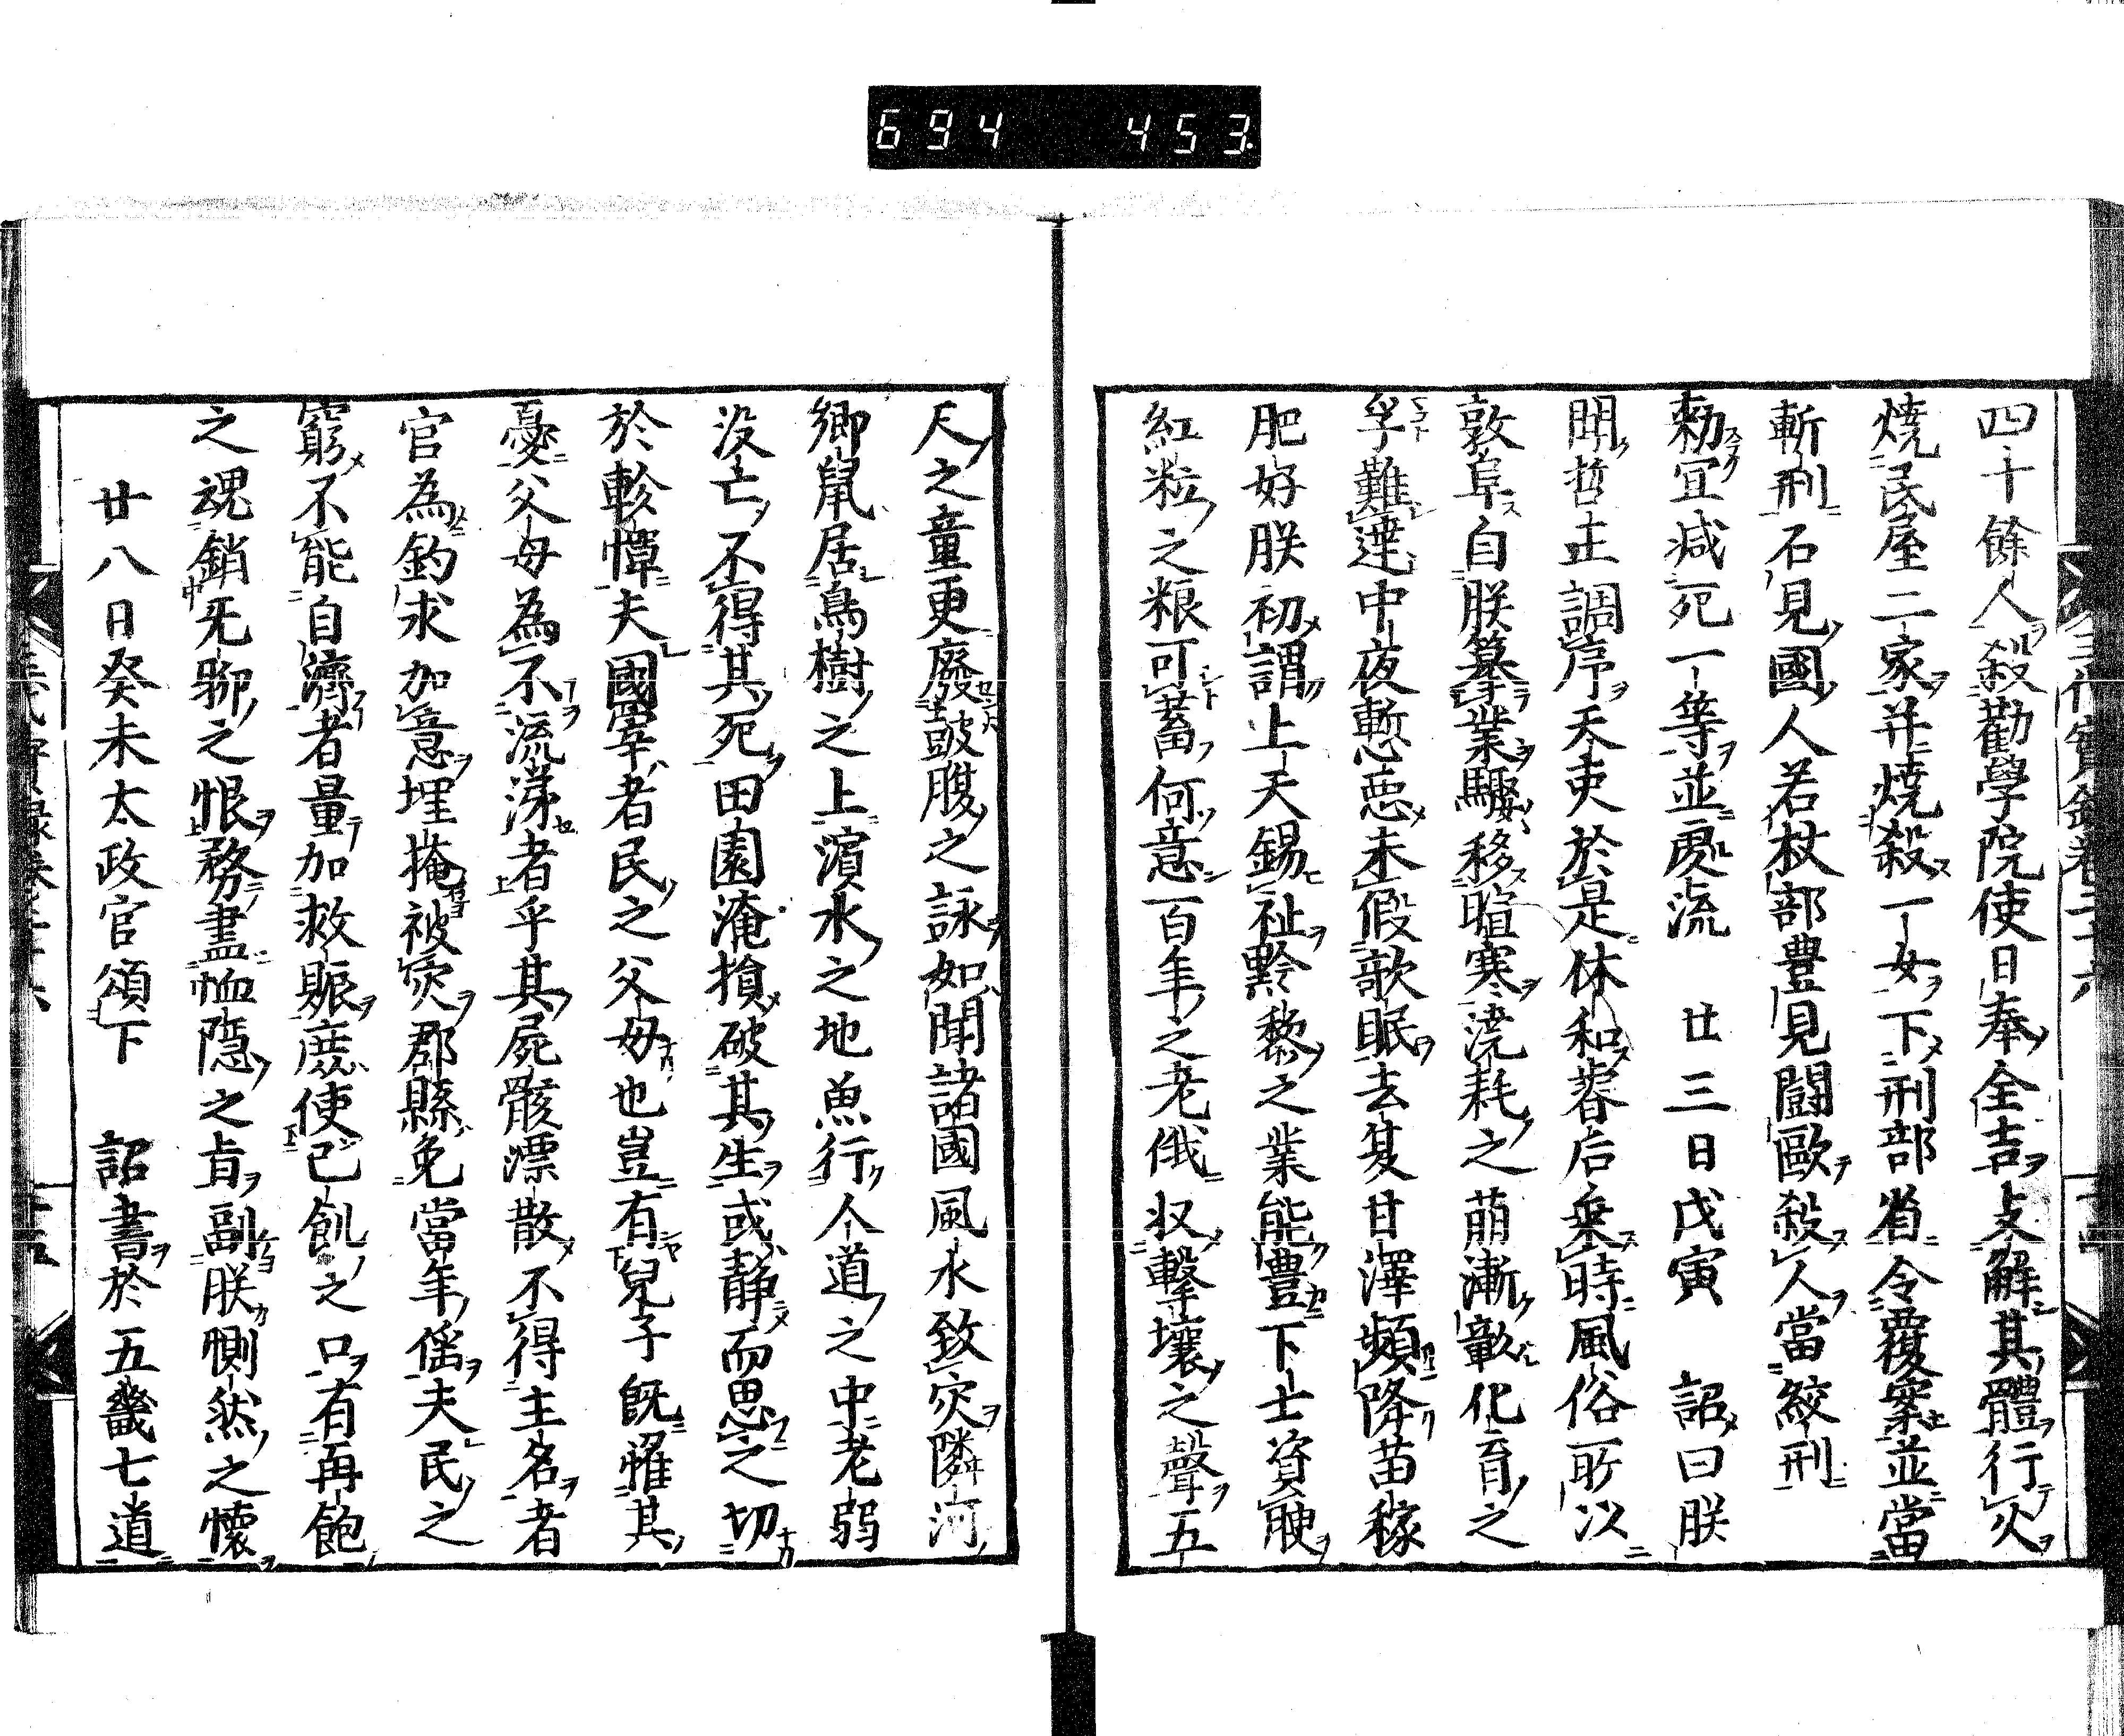 694 453
四十餘人殺勸學院使日奉全吉支解其體行火
燒民屋二家并燒殺一女下刑部省令覆案並當
斬刑石見國人若杖部豊見鬪毆殺人當絞刑
勅宜减死一等並處流 廿三日戊寅 詔曰朕
聞哲王調序天吏於是休和睿后乗時風俗所以
敦阜自朕纂業驟移暄寒澆耗之萠漸彰化育之
孚難達中夜慙悪未假歌眠去夏甘澤頻降苗稼
肥好朕初謂上天錫祉黔黎之業能豊下士資腴
紅粒之粮可蓄何意百年之老俄収擊壤之聲五
尺之童更廢鼓腹之詠如聞諸國風水致灾隣河
鄉鼠居鳥樹之上濱水之地魚行人道之中老弱
没亡不得其死田園淹損破其生或靜而思之切
於軫憚夫國宰者民之父毋也豈有兒子旣罹其
憂父母為不流涕者乎其屍骸漂散不得主名者
官為釣求加意埋掩被灾郡縣免當年徭夫民之
窮不能自濟者量加救賑庶使已飢之口有再飽
之魂銷无聊之恨務盡恤隱之旨副朕惻然之懷
廿八日癸未太政官頒下 詔書於五畿七道